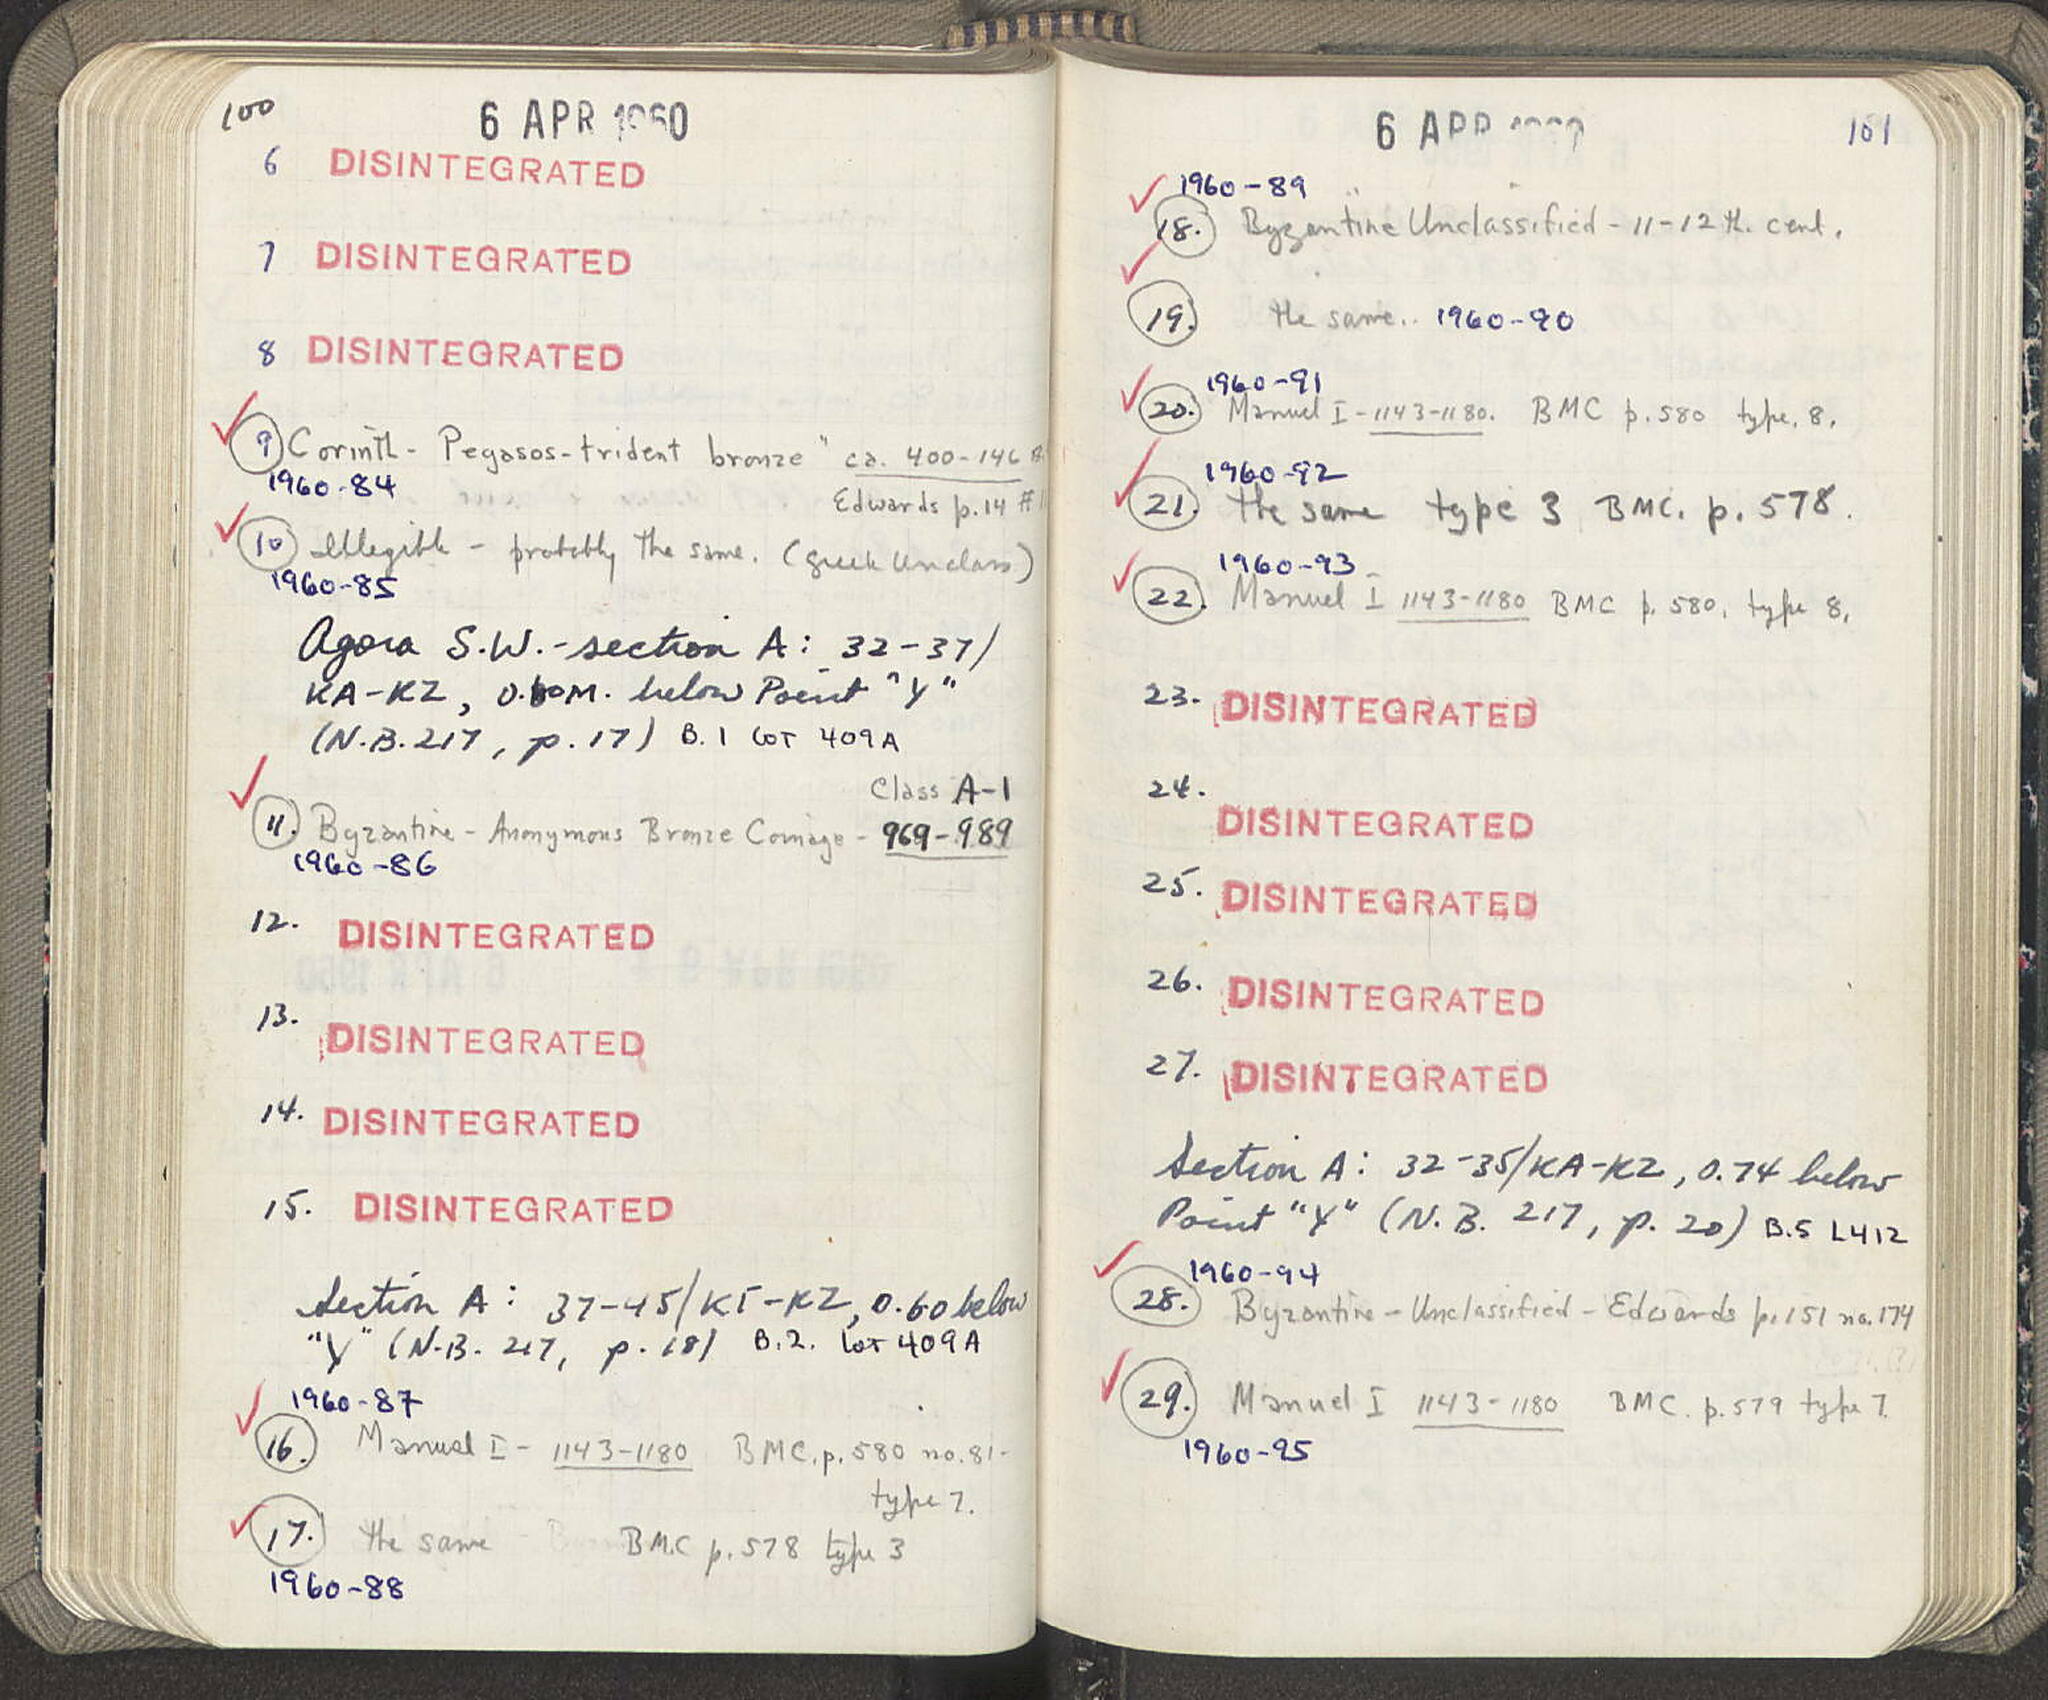 100
6 APR 1960
6 DISINTEGRATED
7 DISINTEGRATED
8 DISINTEGRATED
9 Corinth - Pegasos-trident bronze" ca. 400-146 B
1960-84
Edwards p.14 #1
10 Illegible - probably the same. (Greek Unclass)
1960-85
Agora S.W.-section A: 32-37/
KA-KZ, 0.60M. below Point "Y"
(N.B. 217, p. 17) B. 1 LOT 409A
Class A-1
11. Byzantine - Anonymous Bronze Coinage - 969-989
1960-86
12. DISINTEGRATED
13. DISINTEGRATED
14. DISINTEGRATED
15. DISINTEGRATED
Section A: 37-45/KΓ-KZ, 0.60 below
"Y" (N.B. 217, p. 18) B.2. Lot 409A
1960-87
16. Manuel I - 1143-1180 BMC. p. 580 no. 81-
type 7.
17. the same BMC p. 578 type 3
1960-88
6 APR
101
1960-89
18. Byzantine Unclassified - 11-12 th. cent.
19. the same.. 1960-90
1960-91
20. Manuel I - 1143-1180. BMC p. 580 type. 8.
1960-92
21. the same type 3 BMC. p. 578.
1960-93
22. Manuel I 1143-1180 BMC p. 580, type 8.
23. DISINTEGRATED
24. DISINTEGRATED
25. DISINTEGRATED
26. DISINTEGRATED
27. DISINTEGRATED
Section A: 32-35/KA-KZ, 0.74 below
Point "Y" (N.B. 217, p. 20) B.5 L412
1960-94
28. Byzantine - Unclassified - Edwards p. 151 no. 174
29. Manuel I 1143-1180 BMC. p. 579 type 7.
1960-95